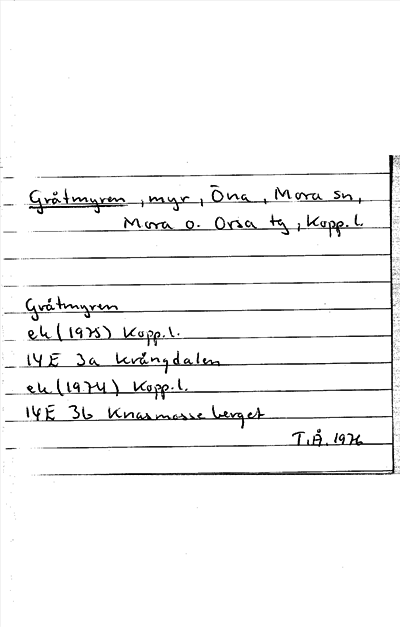 Gråtmyren, myr, Öna, Mora sn,
Mora o. Orsa tg, Kopp. l.
Gråtmyren
ek (1975) Kopp. l.
14E 3a Krångdalen
ek (1974) Kopp. l.
14E 3b Knasmasseberget
T.Å. 1976